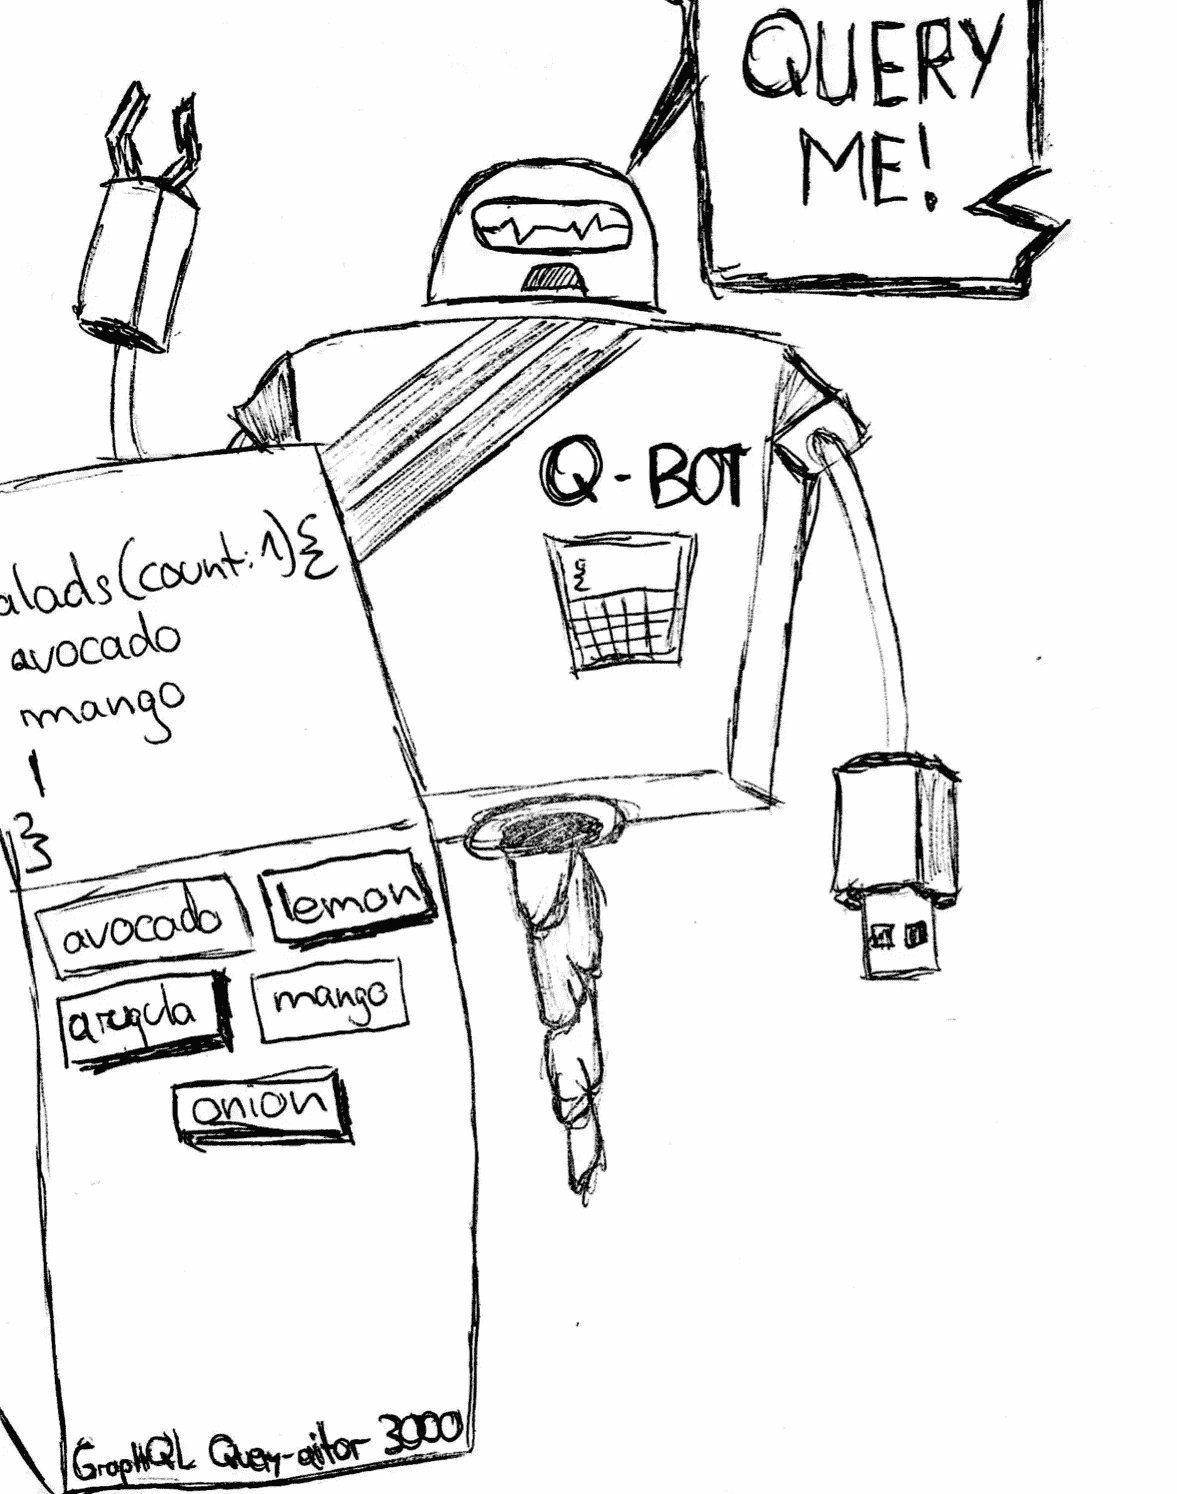 QUERY
ME!
Q-BOT
{
alads(count:1){
avocado
mango
}
avocado
lemon
arugula
mango
onion
GraphQL Query-editor 3000